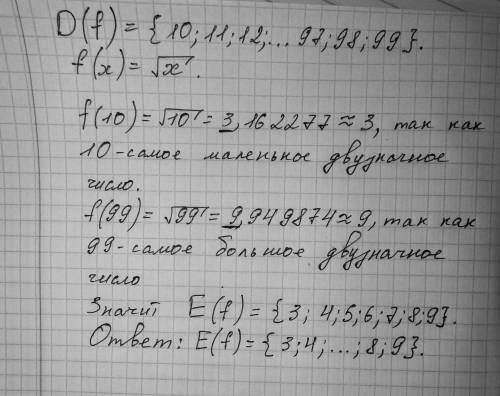 D(f) = {10; 11; 12; ... 97; 98; 99}.
f(x) = √x.
f(10) = √10 = 3,162277 ≈ 3, так как
10 - самое маленьное двузначное
число.
f(99) = √99 = 9,949874 ≈ 9, так как
99 - самое большое двузначное
число
Значит E(f) = {3; 4; 5; 6; 7; 8; 9}.
Ответ: E(f) = {3; 4; ...; 8; 9}.